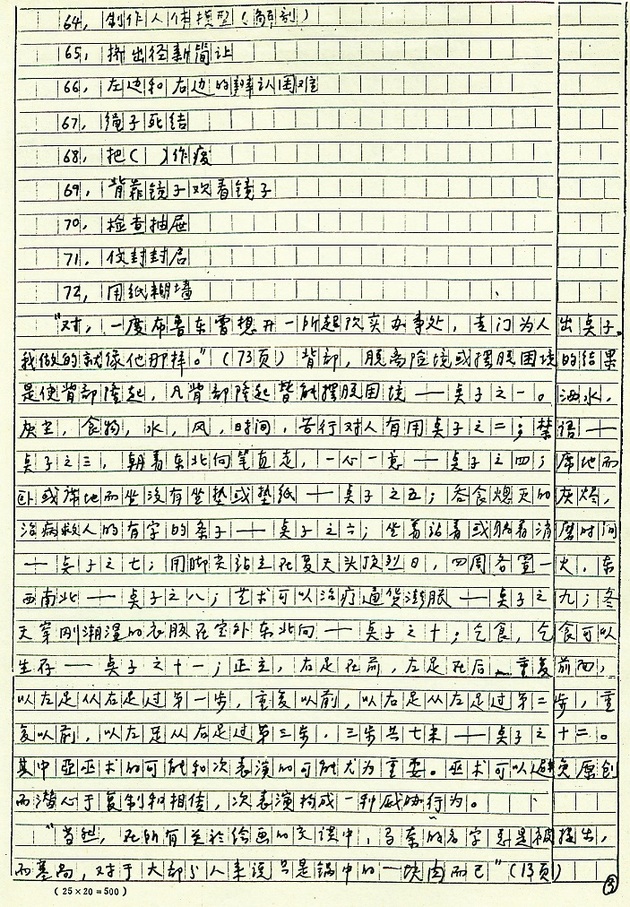 64, 制作人体模型(解剖)
65, 挤出径新简让
66, 左边和右边的辨认困难
67, 绳子死结
68, 把( )作废
69, 背靠镜子观看镜子
70, 检查抽屉
71, 信封封启
72, 用纸糊墙
"对, 一度布鲁东曾想开一所超次买办事处, 专门为人出点子。
我做的就像他那样。"(73页)背部, 脱离险境或摆脱困境的结果
是使背部隆起, 凡背部隆起皆能摆脱困境——点子之一。洒水,
灰尘, 食物, 水, 风, 时间, 苦行对人有用点子之二; 禁语——
点子之三, 朝着东北向笔直走, 一心一意——点子之四; 席地而
卧或席地而坐没有坐垫或垫纸——点子之五; 吞食熄灭的灰烬,
治病救人的有字的条子——点子之六; 坐着站着或躺着消磨时间
——点子之七; 用脚尖站立在夏天头顶烈日, 四周各置一火, 东
西南北——点子之八; 艺术可以治疗通货膨胀——点子之九; 冬
天穿刚潮湿的衣服在室外东北向——点子之十; 乞食, 乞食可以
生存——点子之十一; 正立, 右足在前, 左足在后, 重复前面,
以左足从右足过第一步, 重复以前, 以右足从左足过第二步, 重
复以前, 以左足从右足过第三步, 三步共七米——点子之十二。
其中亚巫术的可能和次表演的可能尤为重要。巫术可以避免原创
而潜心于复制和相信, 次表演构成一种威胁行为。
"当然, 在所有关于绘画的交谈中, 马奈的名字总是被提出,
而塞尚, 对于大部分人来说只是锅中的一块肉而已"(13页)
(25×20=500)
③